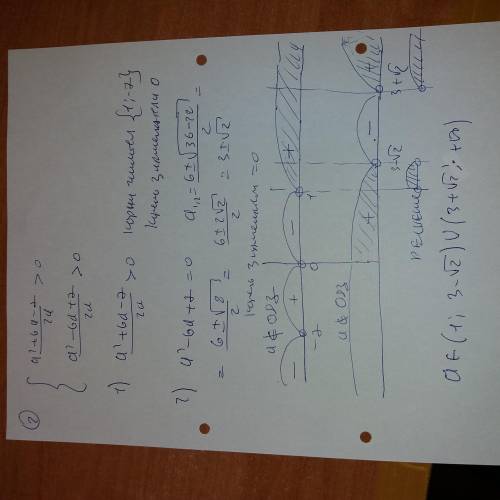 ②
{ (a²+6a−7)/2a > 0
(a²−6a+7)/2a > 0
1) (a²+6a−7)/2a > 0 корни числит {1; −7}
корень знаменателя 0
2) a²−6a+7=0 a₁,₂ = (6±√(36−28))/2 =
= (6±√8)/2 = (6±2√2)/2 = 3±√2
корень знаменат =0
a ∈ ОДЗ
− + − +
−7 0 1
a ∈ ОДЗ
+ − +
3−√2 3+√2
РЕШЕНИЕ
a ∈ (1; 3−√2) ∪ (3+√2; +∞)